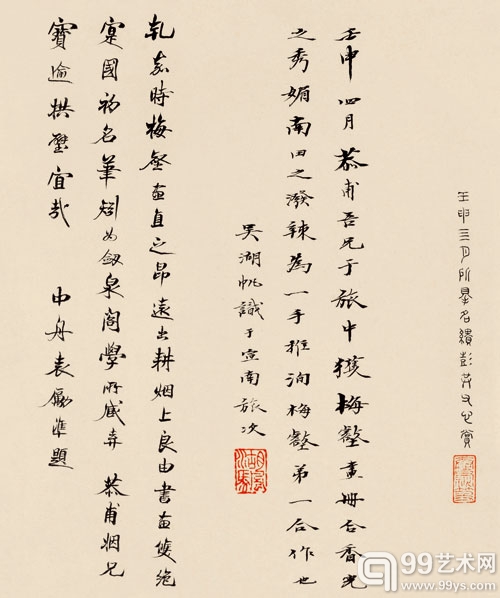 壬申三月所名繢
壬申四月恭甫吾兄于旅中獲梅壑畫冊合香光
之秀媚南田之潑辣為一手推洵梅壑第一合作也
吳湖帆識于宣南旅次
乹嘉時梅壑画直之昂遠出耕烟上良由書画雙絕
寔國初名筆矧為劍泉閣學所藏弆 恭甫姻兄
寶逾拱璧宜哉 中舟袁勵準題
99艺术网
www.99ys.com